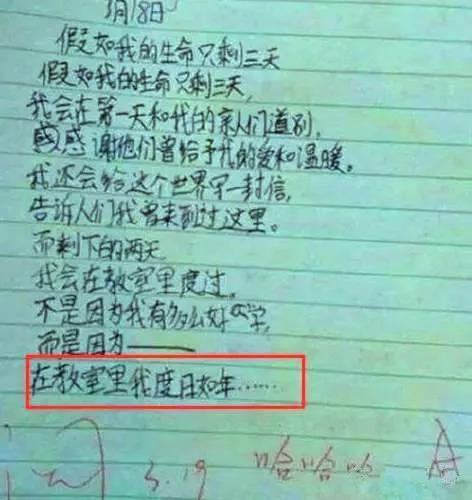 3月18日
假如我的生命只剩三天
假如我的生命只剩三天,
我会在第一天和我的亲人们道别,
感谢他们曾给予我的爱和温暖。
我还会给这个世界写一封信,
告诉人们我曾来到过这里。
而剩下的两天
我会在教室里度过。
不是因为我有多么好学,
而是因为——
在教室里我度日如年……
3.19 哈哈哈 A